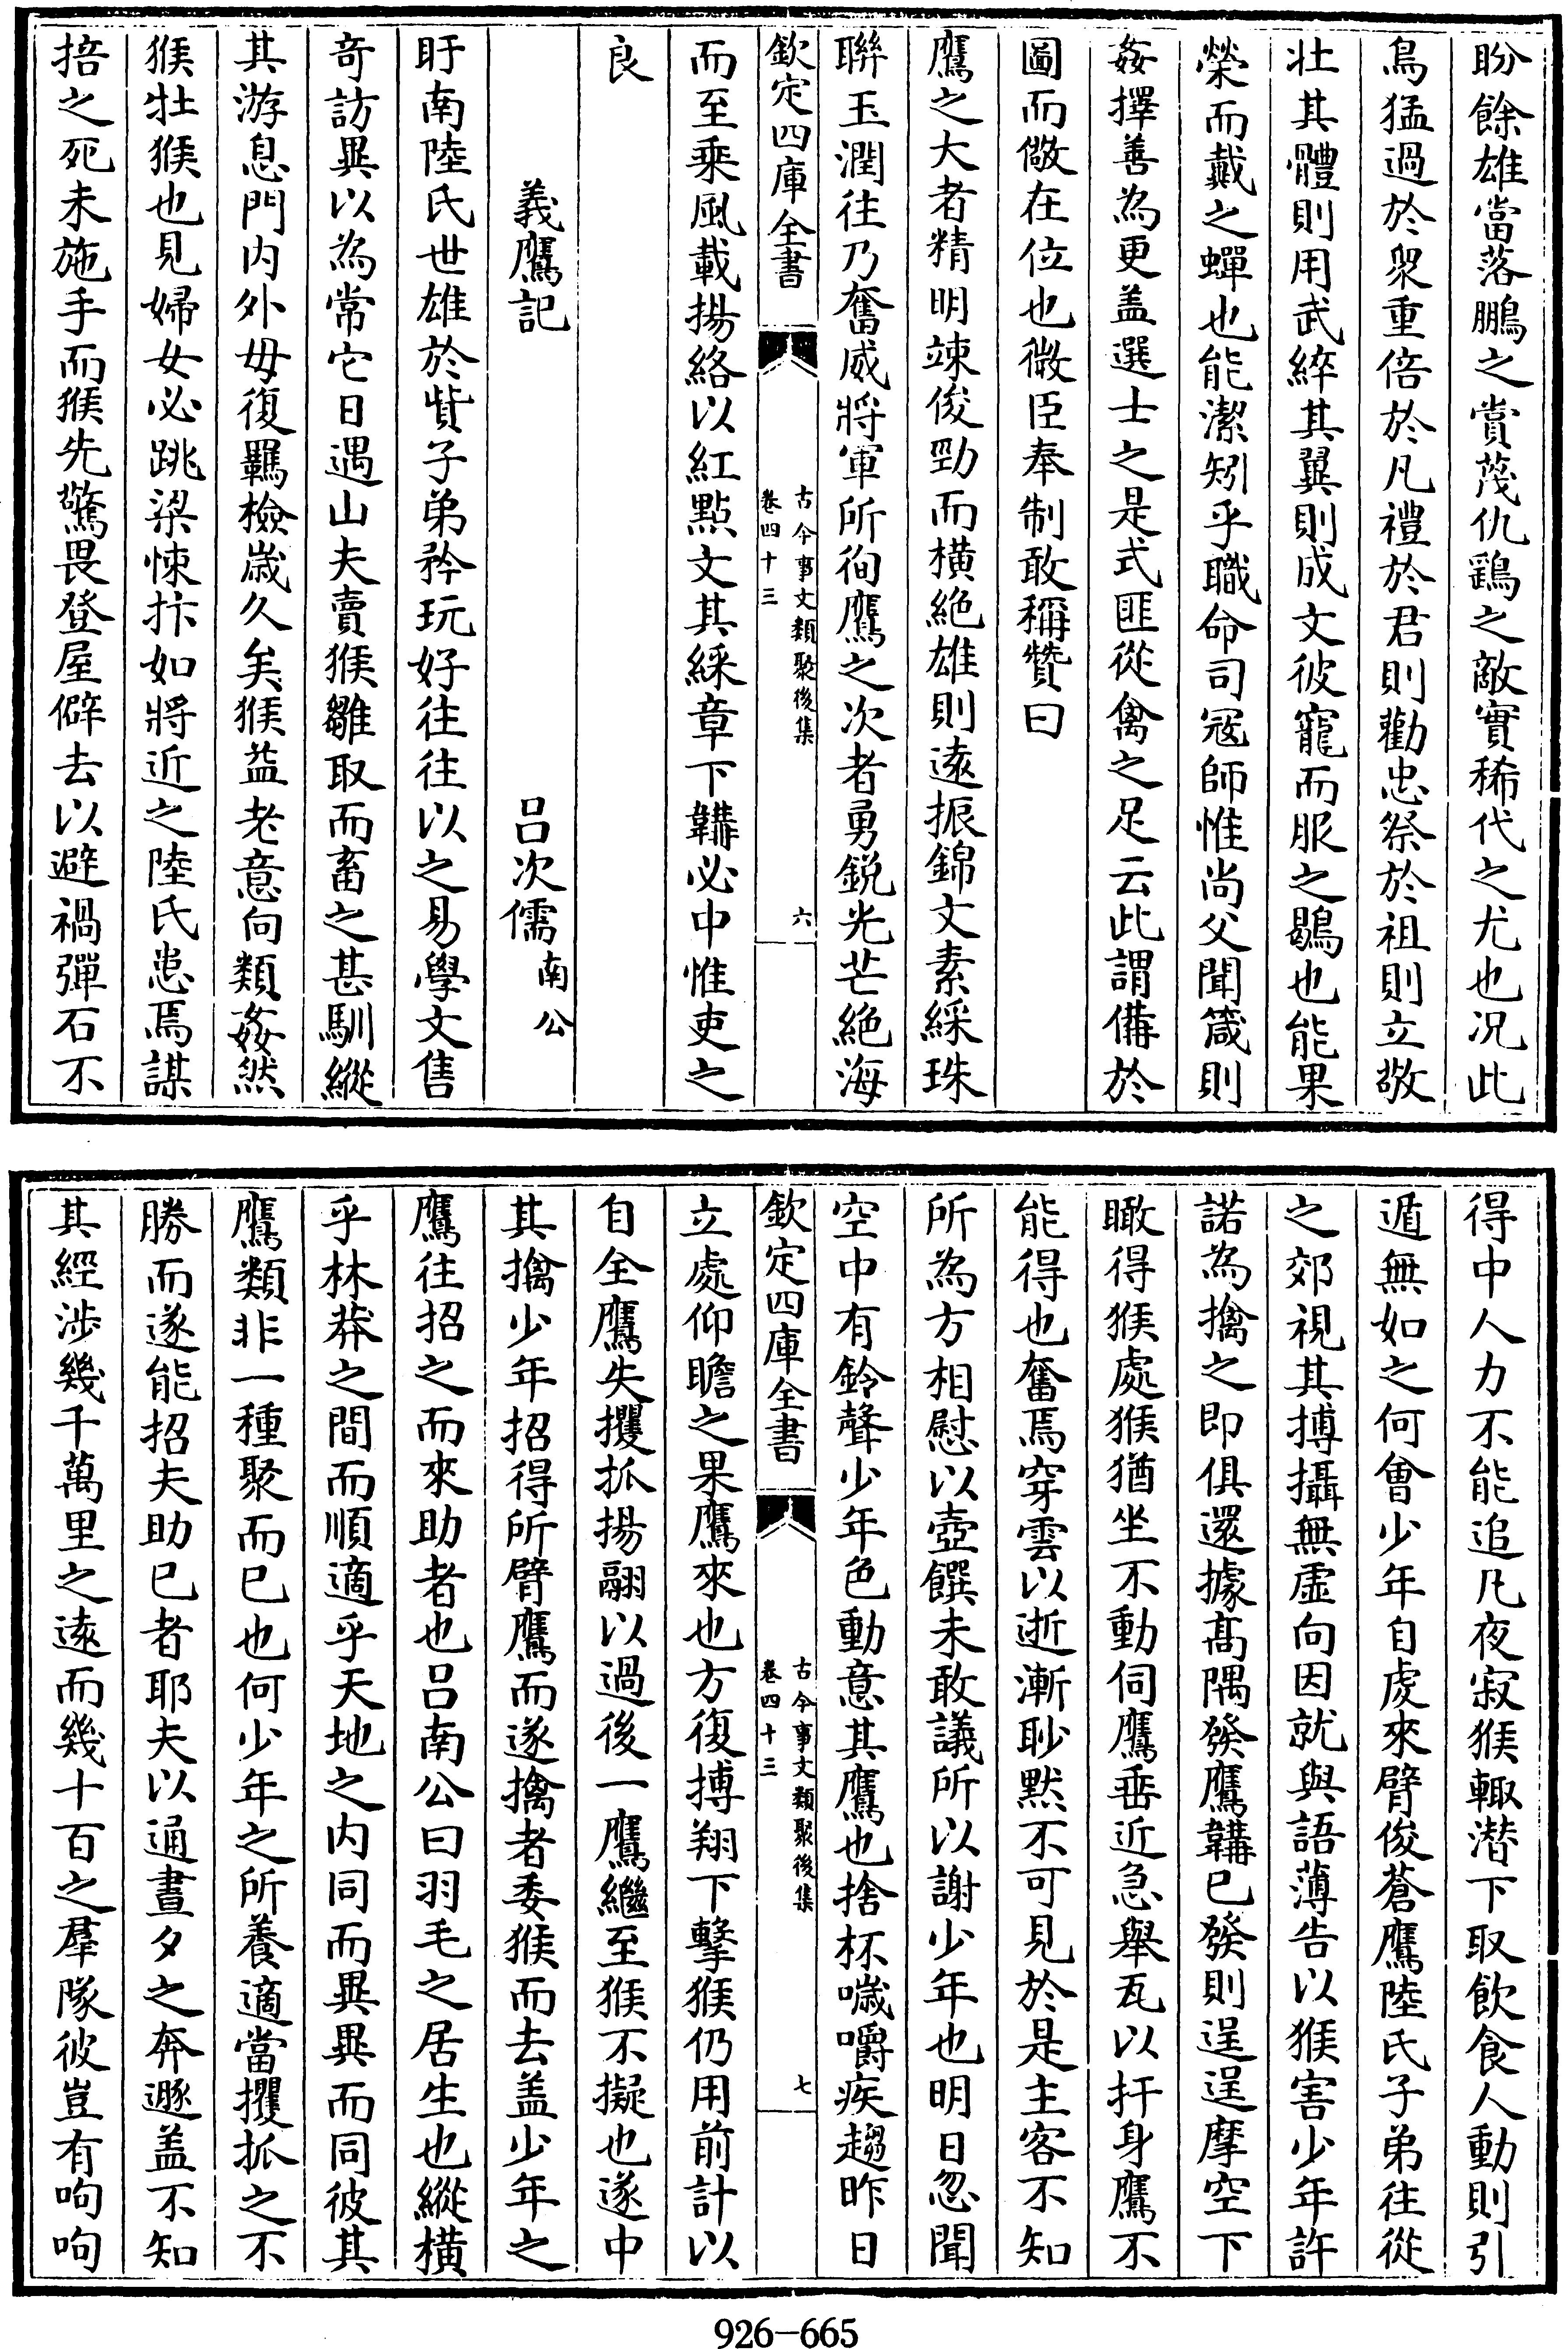 盼餘雄當落鵬之賞茂仇鷂之敵實稀代之尤也况此
鳥猛過於衆重倍於凡禮於君則勸忠祭於祖則立敬
壮其體則用武綷其翼則成文彼寵而服之鶡也能果
榮而戴之蟬也能潔矧乎職命司冦師惟尚父聞箴則
姦擇善為更盖選士之是式匪從禽之足云此謂備於
圖而儆在位也微臣奉制敢稱贊曰
鷹之大者精明竦俊勁而橫絶雄則遠振錦文素綵珠
聨玉潤往乃奮威將軍所徇鷹之次者勇鋭光芒絶海
欽定四庫全書
古今事文類聚後集
卷四十三
六
而至乘風載揚絡以紅點文其綵章下韝必中惟吏之
良
義鷹記
吕次儒南公
盱南陸氏世雄於貲子弟矜玩好往往以之易學文售
奇訪異以為常它日遇山夫賣猴雛取而畜之甚馴縱
其游息門内外毋復羈檢歲久矣猴益老意向類姦然
猴牡猴也見婦女必跳梁悚抃如將近之陸氏患焉謀
掊之死未施手而猴先驚畏登屋僻去以避禍彈石不
得中人力不能追凡夜寂猴輙潛下取飲食人動則引
遁無如之何會少年自䖍來臂俊蒼鷹陸氏子弟往從
之郊視其搏攝無虚向因就與語薄告以猴害少年許
諾為擒之即俱還據髙隅發鷹韝已發則逞逞摩空下
瞰得猴處猴猶坐不動伺鷹垂近急舉瓦以扞身鷹不
能得也奮焉穿雲以逝漸眇黙不可見於是主客不知
所為方相慰以壺饌未敢議所以謝少年也明日忽聞
空中有鈴聲少年色動意其鷹也捨杯噦嚼疾趨昨日
欽定四庫全書
古今事文類聚後集
卷四十三
七
立處仰瞻之果鷹來也方復搏翔下擊猴仍用前計以
自全鷹失攫抓揚翮以過後一鷹繼至猴不擬也遂中
其擒少年招得所臂鷹而遂擒者委猴而去盖少年之
鷹往招之而來助者也吕南公曰羽毛之居生也縱橫
乎林莽之間而順適乎天地之内同而異異而同彼其
鷹類非一種聚而已也何少年之所養適當攫抓之不
勝而遂能招夫助已者耶夫以通晝夕之奔遯盖不知
其經涉幾千萬里之遠而幾十百之羣隊彼豈有呴呴
926-665